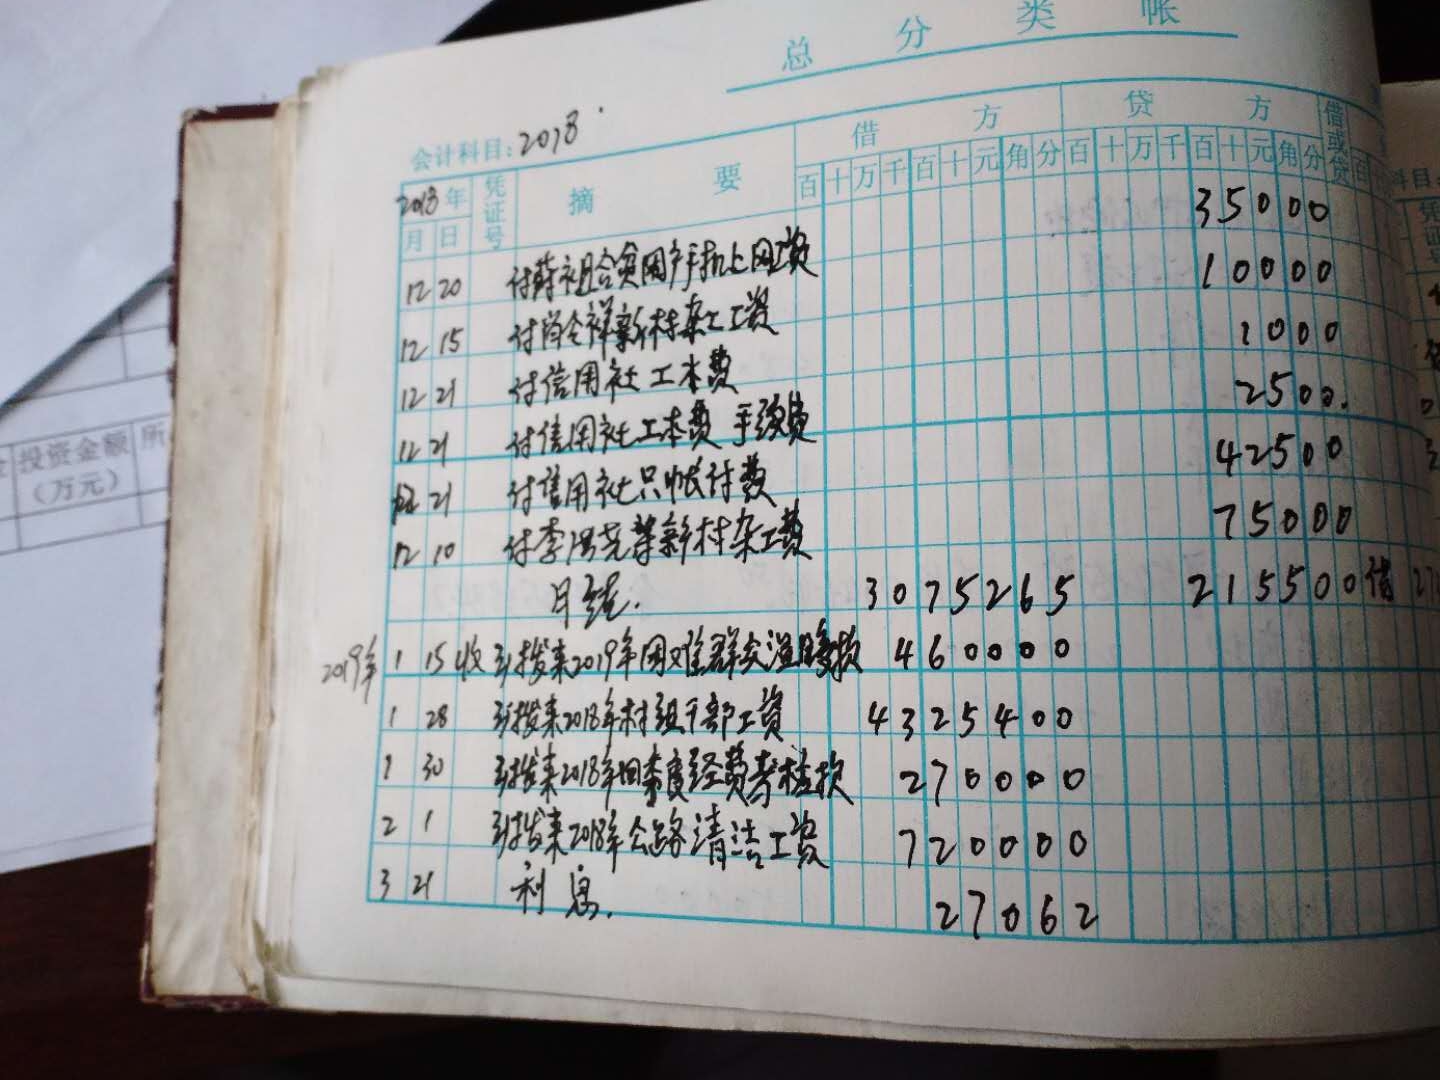 总 分 类 帐
会计科目: 2018
2018年 凭证号 摘 要 借 方 贷 方 借或贷
月 日 百十万千百十元角分 百十万千百十元角分
12 20 付 祖合贫困户手机上网费 35000
12 15 付肖全祥新村杂工工资 10000
12 21 付信用社工本费 1000
12 21 付信用社工本费手续费 2500
12 21 付信用社 费 42500
12 10 付李 尧等新村杂工费 75000
月结. 3075265 215500 借
2019年 1 15 收 拨来2019年困难群众温暖款 460000
1 28 拨来2018年村组干部工资 4325400
1 30 拨来2018年四季度经费考核款 270000
2 1 拨来2018年公路清洁工资 720000
3 21 利息. 27062
投资金额 所
(万元)
科目: